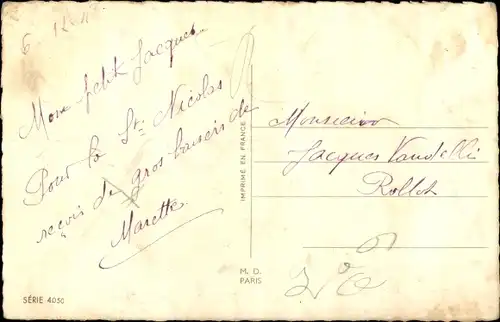 6
Mon petit Jacques
Pour la St Nicolas
reçois de gros baisers de
Marette
IMPRIMÉ EN FRANCE
M. D.
PARIS
SÉRIE 4050
Monsieur
Jacques Vandelli
Rollot